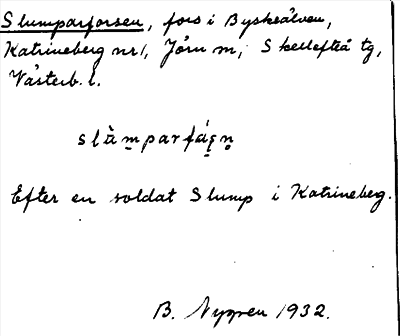 Slumparforsen, fors i Byskeälven,
Katrineberg nr 1, Jörn m, Skellefteå tg,
Västerb. l.
Efter en soldat Slump i Katrineberg.
B. Nygren 1932.